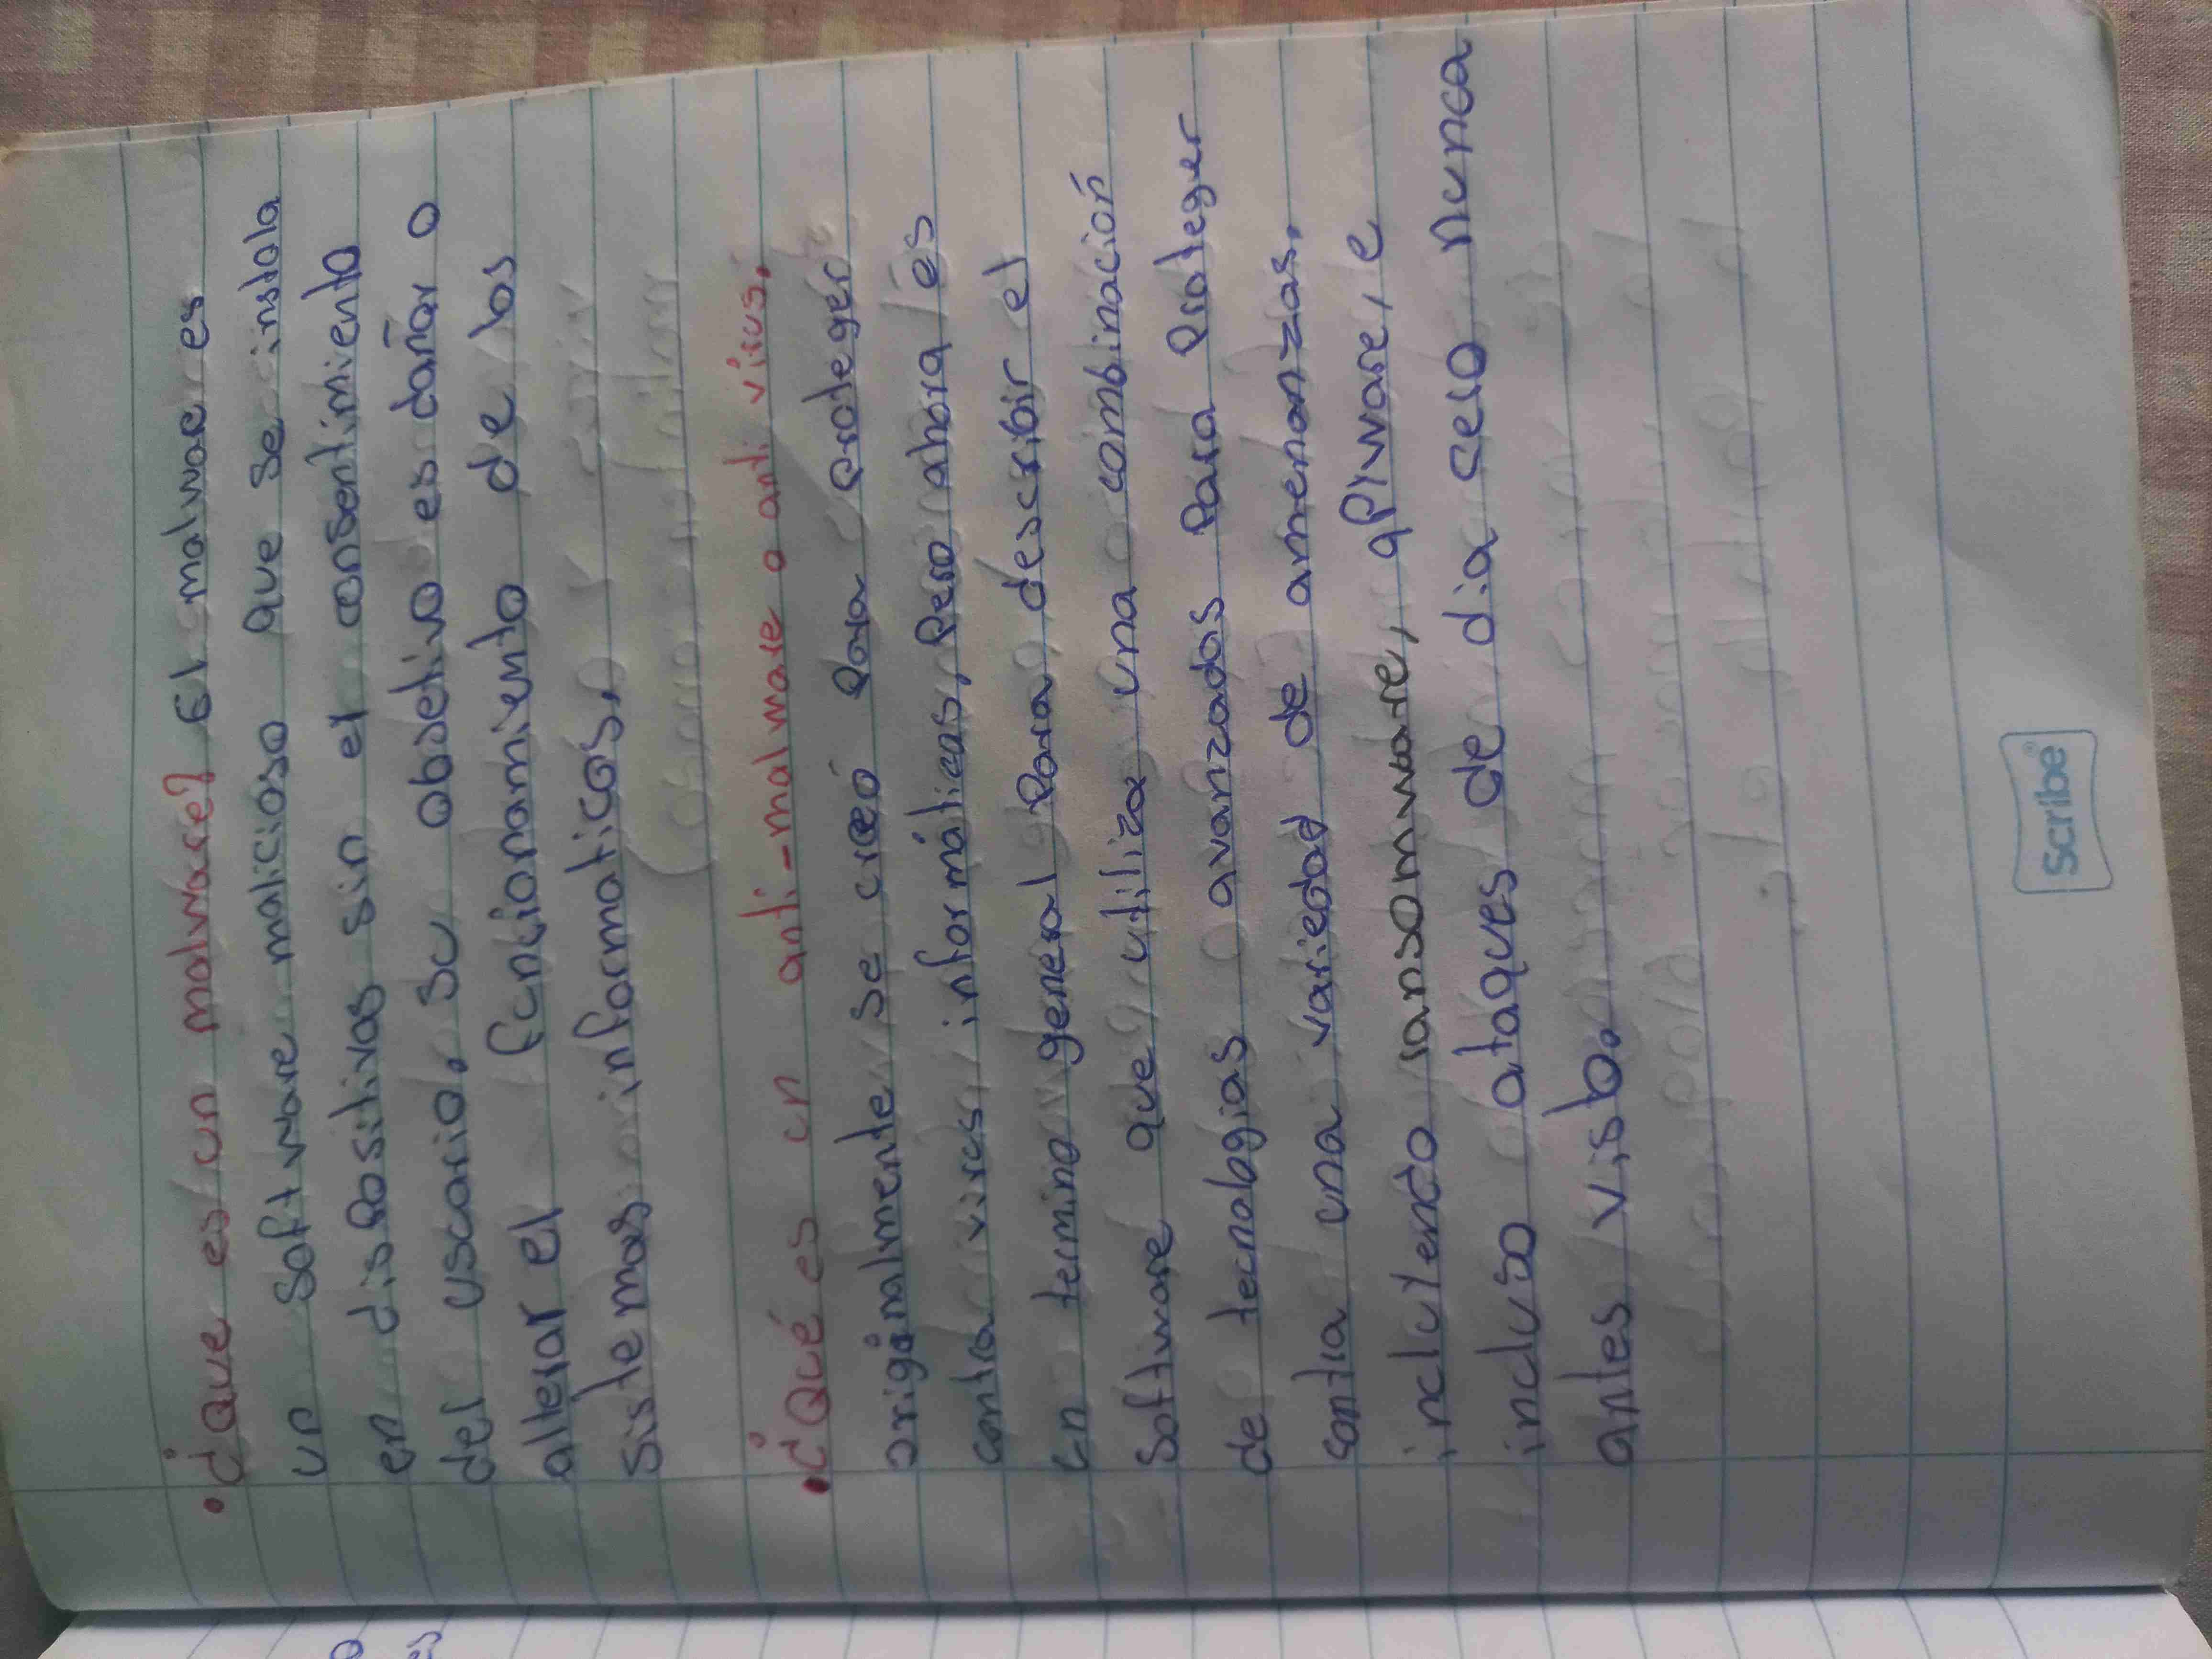 • ¿Que es un malware? El malware es
un software malicioso que se instala
en dispositivos sin el consentimiento
del usuario. su objetivo es dañar o
alterar el funcionamiento de los
sistemas informaticos.
• ¿Qué es un anti-malware o anti virus.
originalmente se creó para proteger
contra virus informáticas, pero ahora es
un termino general para describir el
software que utiliza una combinación
de tecnologias avanzadas para proteger
contra una variedad de amenanzas.
incluyendo ransomware, apyware, e
incluso ataques de dia cero nunca
antes visto.
Scribe®